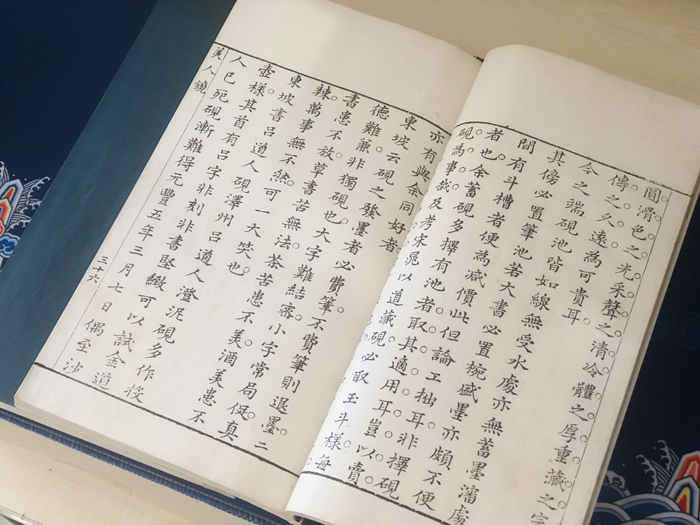 圓滑色之光采聲之清冷體之厚重藏之
傳之久遠為可貴耳
今之端硯池皆如線無受水處亦無蓄墨瀋處
其傍必置筆池若大書必置椀盛墨亦頗不便
間有斗槽者便為減價此但論工拙耳非擇硯
者也余蓄硯多擇有池者取其適用耳豈以賣
硯為事哉及考宋晁以道藏硯必取至斗樣每
亦有與余同好者
東坡云硯之發墨者必費筆不費筆則退墨二
德難兼非獨硯也大字難結密小字常局促真
書患不放草書苦無法茶苦患不美酒美患不
辣萬事無不然可一大笑也
東坡書呂道人硯澤州呂道人澄泥硯多作投
壺樣其首有呂字非刻非書堅緻可以試金道
人已死硯漸難得元豐五年三月七日偶至沙
美人鏡
三十六